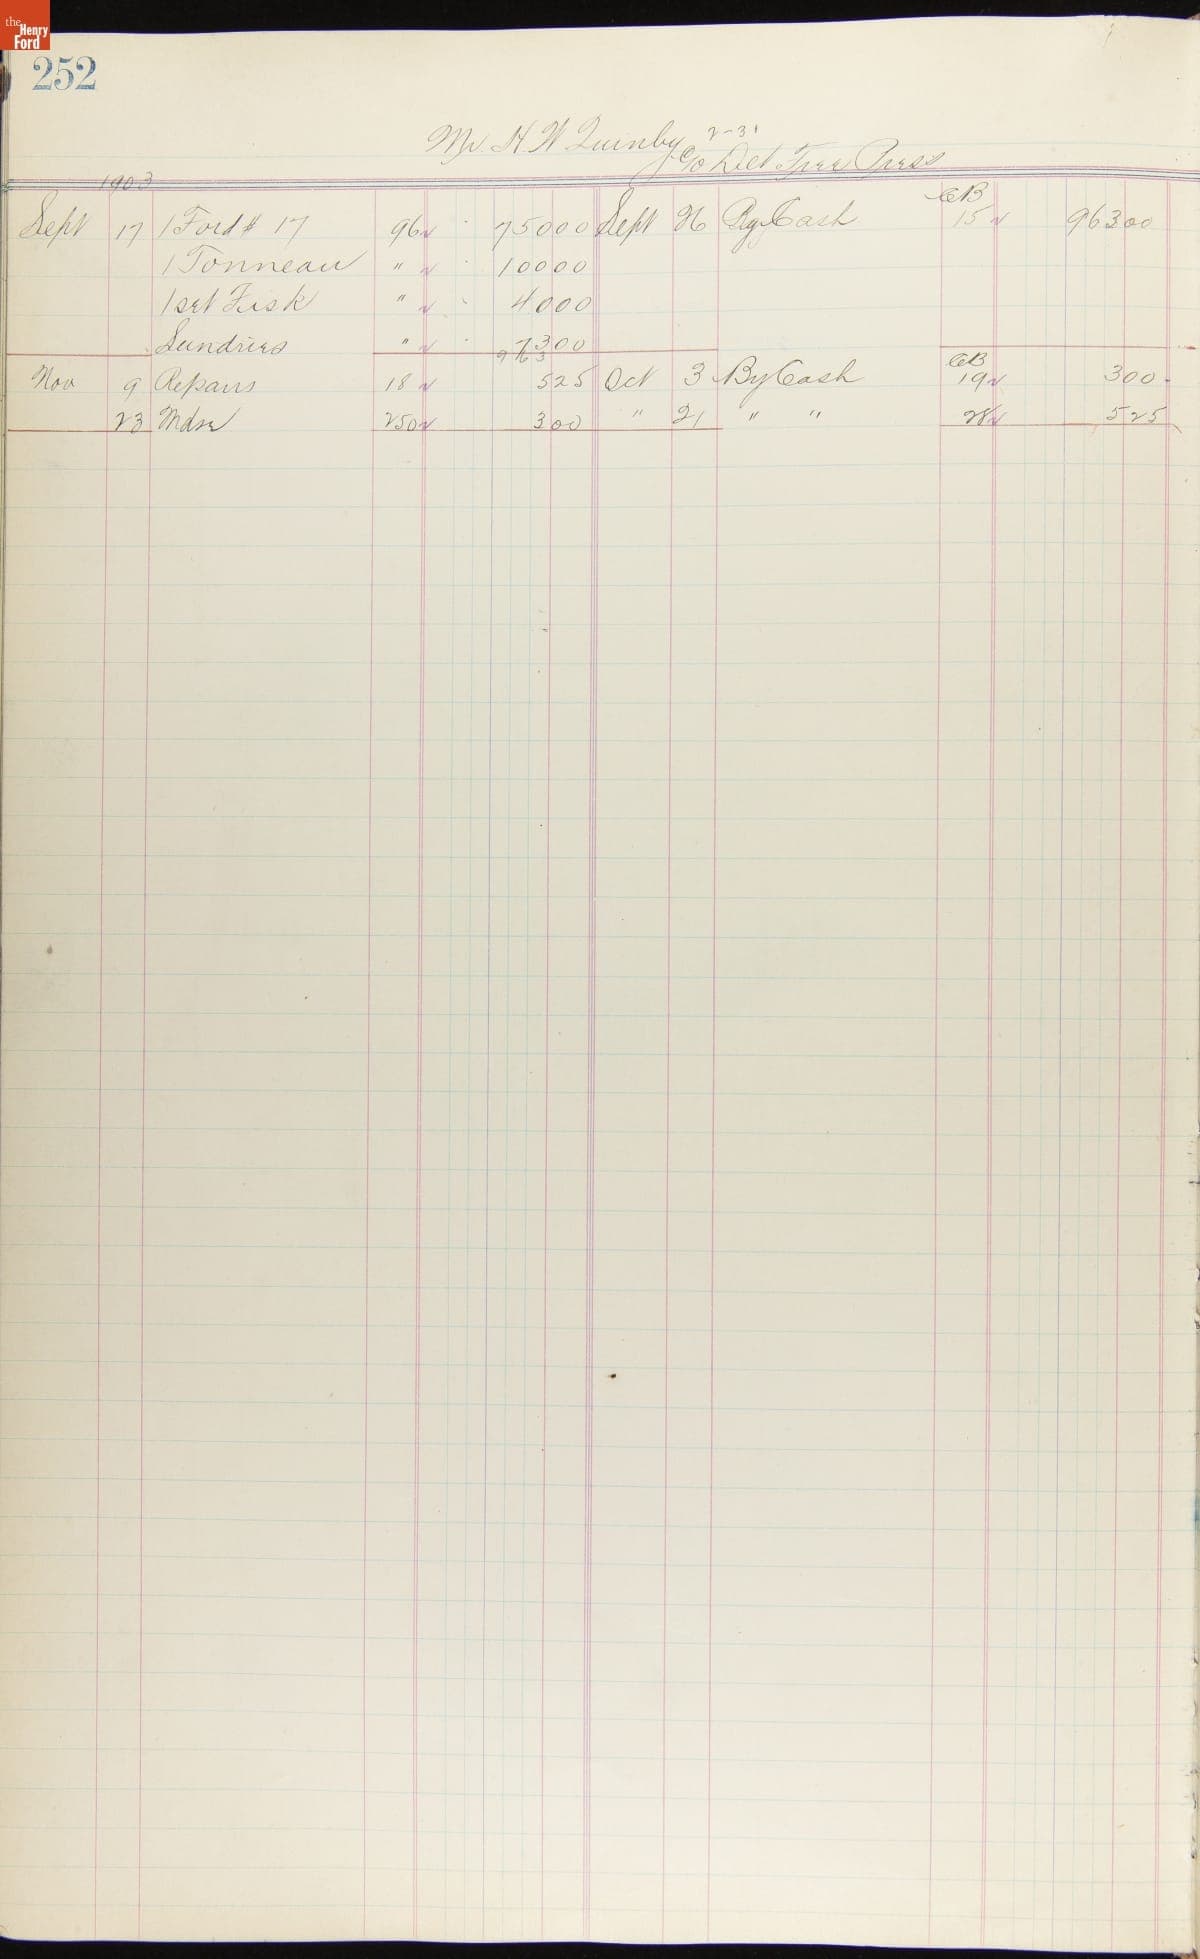 the Henry Ford
252
Mr. H W Quinby 2-31
c/o Det Free Press
1903
Sept 17 1 Ford # 17 96 75000 Sept 26 By Cash CB 15 96300
1 Tonneau " 10000
1 set Fisk " 4000
Sundries " 7300
963
Nov 9 Repairs 18 525 Oct 3 By Cash CB 19 300
23 Mdse 250 300 " 21 " " 28 525